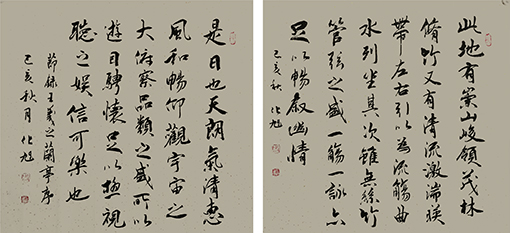 此地有崇山峻領茂林
脩竹又有清流激湍暎
帶左右引以為流觴曲
水列坐其次雖無絲竹
管弦之盛一觴一詠亦
足以暢敘幽情
己亥秋
是日也天朗氣清惠
風和暢仰觀宇宙之
大俯察品類之盛所以
遊目騁懷足以極視
聽之娛信可樂也
節錄王羲之蘭亭序
己亥秋月